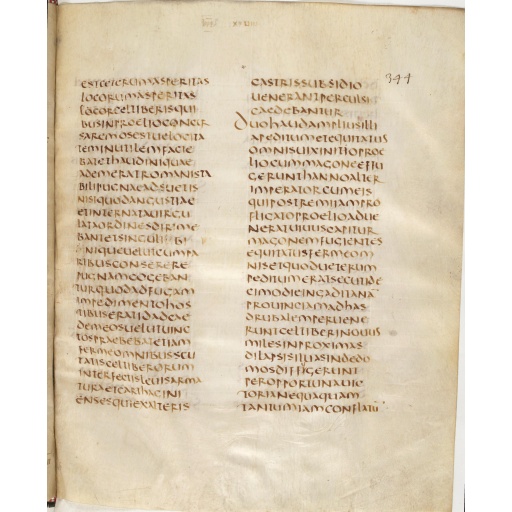 344
EST CETERUM ASPERITAS
LOCORUM ASPERITAS
LOCOR CELTIBERIS QUI
BUS IN PROELIO CONCUR
SARE MOS EST UELOCITA
TEM INUTILEM FACIE
BAT ET HAUD INIQUA E
ADEM ERAT ROMANIS STA
BILI PUGNAE ADSUETIS
NISI QUOD ANGUSTIAE
ET INTERNATA UIRGU
LATA ORDINES DIRIME
BANT ET SINGULI BI
NIQUE UELUT CUM PA
RIBUS CONSERERE
PUGNAM COGEBAN
TUR QUOD AD FUGAM
IMPEDIMENTO HOS
TIBUS ERAT ID AD CAE
DEM EOS UELUT UINC
TOS PRAEBEBAT ET IAM
FERME OMNIBUS SCU
TATIS CELTIBERORUM
INTERFECTIS LEUIS ARMA
TURA ET CARTHAGINI
ENSES QUI EX ALTERIS
CASTRIS SUBSIDIO
UENERANT PERCULSI
CAEDEBANTUR
DUO HAUD AMPLIUS ILLI
A PEDITUM ET EQUITATUS
OMNIS UIX INITIO PROE
LIO CUM MAGONE EFFU
GERUNT HANNO ALTER
IMPERATOR CUM EIS
QUI POSTREMI IAM PRO
FLIGATO PROELIO ADUE
NERAT UIUUS CAPITUR
MAGONEM FUGIENTES
EQUITATUS FERME OM
NIS ET QUOD UETERUM
PEDITUM ERAT SECUNDE
CIMO DIE IN GADITANA
PROUINCIAM AD HAS
DRUBALEM PERUENE
RUNT CELTIBERI NOUUS
MILES IN PROXIMAS
DILAPSI SILUAS INDE DO
MOS DIFFUGERUNT
PEROPPORTUNA UIC
TORIA NEQUAQUAM
TANTUM IAM CONFLATU